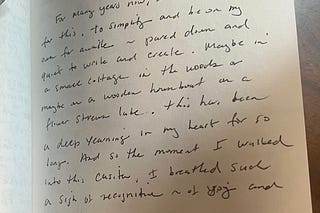 For many years now,
for this, to simplify and be on my
own for awhile ~ pared down and
quiet to write and create. Maybe in
a small cottage in the woods or
maybe on a wooden houseboat on a
flower strewn lake. This has been
a deep yearning in my heart for so
long. And so the moment I walked
into this casita, I breathed such
a sigh of recognition ~ of joy and